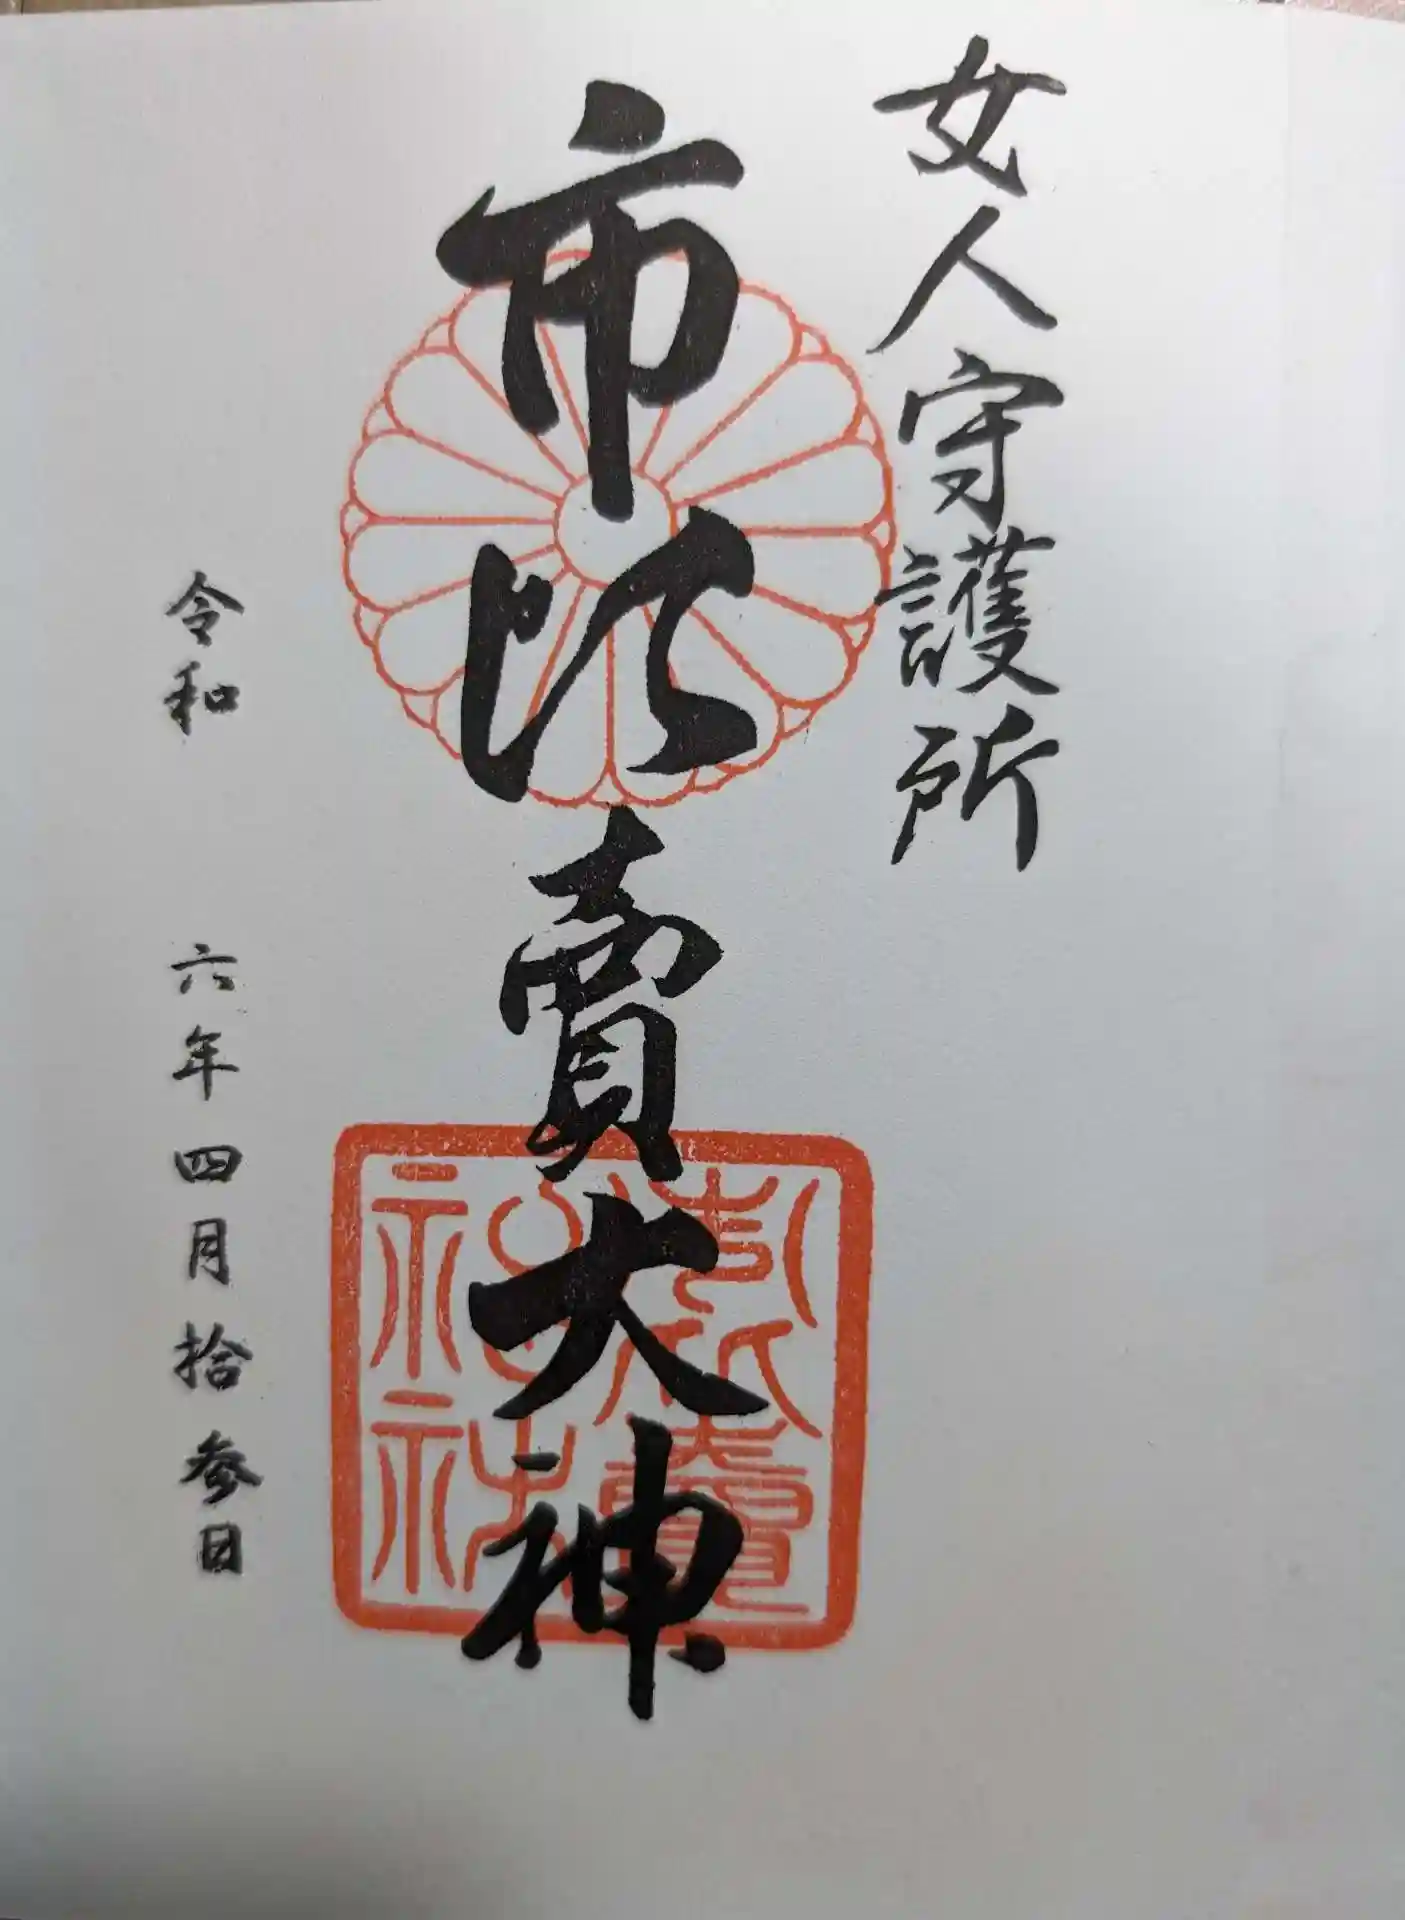 女人守護所
市比賣大神
市比賣神社
令和 六年四月拾参日